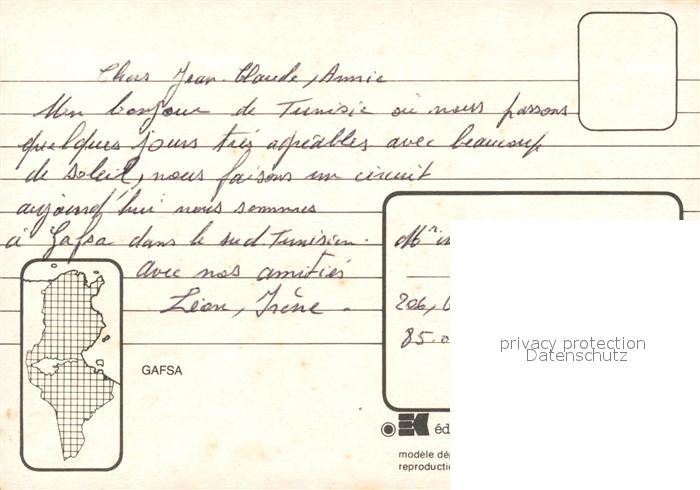 Chers Jean-Claude, Annie
Un bonjour de Tunisie où nous passons
quelques jours très agréables avec beaucoup
de soleil, nous faisons un circuit
aujourd'hui nous sommes
à Gafsa dans le sud Tunisien.
avec nos amitiés
Léon, Irène.
GAFSA
Mr
206,
85.0
privacy protection
Datenschutz
éd
modèle dé
reproducti